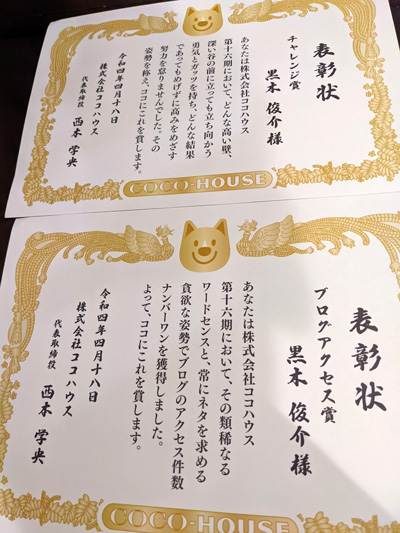 表彰状
チャレンジ賞
黒木 俊介 様
あなたは株式会社ココハウス
第十六期において、どんな高い壁、
深い谷の前に立っても立ち向かう
勇気とガッツを持ち、どんな結果
であってもめげずに高みをめざす
努力を怠りませんでした。その
姿勢を称え、ココにこれを賞します。
令和四年四月十八日
株式会社ココハウス
代表取締役 西本 学央
COCO-HOUSE
表彰状
ブログアクセス賞
黒木 俊介 様
あなたは株式会社ココハウス
第十六期において、その類稀なる
ワードセンスと、常にネタを求める
貪欲な姿勢でブログのアクセス件数
ナンバーワンを獲得しました。
よって、ココにこれを賞します。
令和四年四月十八日
株式会社ココハウス
代表取締役 西本 学央
COCO-HOUSE